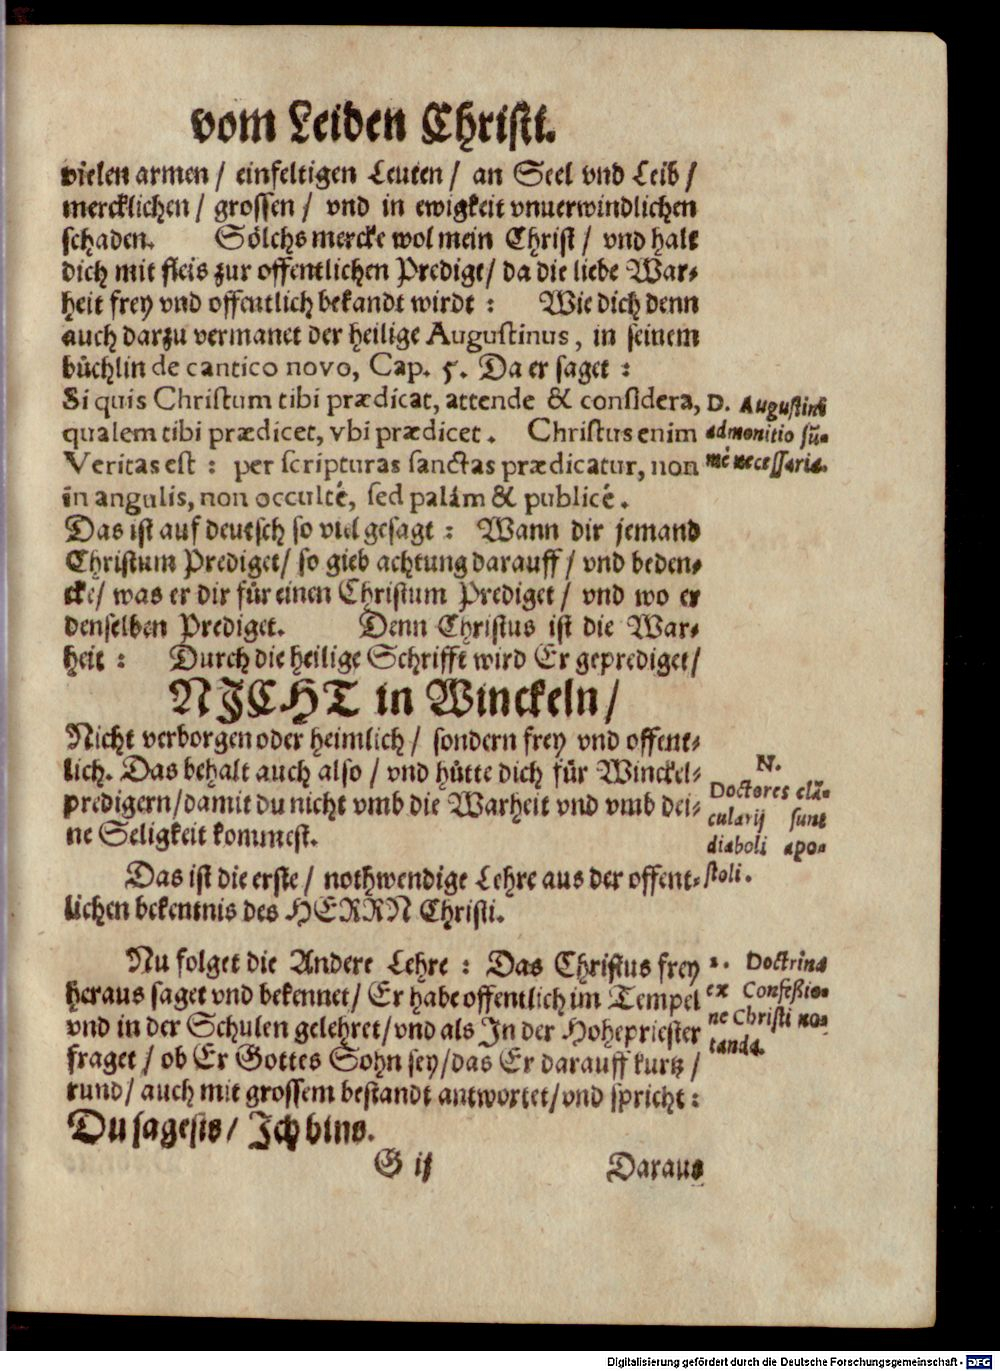 vom Leiden Christi.
vielen armen / einfeltigen Leuten / an Seel vnd Leib /
mercklichen / grossen / vnd in ewigkeit vnuerwindlichen
schaden. Sölchs mercke wol mein Christ / vnd halt
dich mit fleis zur offentlichen Predigt / da die liebe War-
heit frey vnd offentlich bekandt wirdt : Wie dich denn
auch darzu vermanet der heilige Augustinus, in seinem
büchlin de cantico novo, Cap. 5. Da er saget :
Si quis Christum tibi prædicat, attende & considera,
qualem tibi prædicet, vbi prædicet. Christus enim
Veritas est : per scripturas sanctas prædicatur, non
in angulis, non occultè, sed palàm & publicè.
D. Augustini
admonitio sū-
mè necessaria.
Das ist auf deutsch so viel gesagt : Wann dir jemand
Christum Prediget / so gieb achtung darauff / vnd beden-
cke / was er dir für einen Christum Prediget / vnd wo er
denselben Prediget. Denn Christus ist die War-
heit : Durch die heilige Schrifft wird Er geprediget /
NICHT in Winckeln /
Nicht verborgen oder heimlich / sondern frey vnd offent-
lich. Das behalt auch also / vnd hütte dich für Winckel-
predigern / damit du nicht vmb die Warheit vnd vmb dei-
ne Seligkeit kommest.
N.
Doctores clā-
cularij sunt
diaboli apo-
stoli.
Das ist die erste / nothwendige Lehre aus der offent-
lichen bekentnis des HERRN Christi.
Nu folget die Andere Lehre : Das Christus frey
heraus saget vnd bekennet / Er habe offentlich im Tempel
vnd in der Schulen gelehret / vnd als In der Hohepriester
fraget / ob Er Gottes Sohn sey / das Er darauff kurtz /
rund / auch mit grossem bestandt antwortet / vnd spricht :
Du sagests / Ich bins.
2. Doctrina
ex Confeßio-
ne Christi no-
tanda.
G ij Daraus
Digitalisierung gefördert durch die Deutsche Forschungsgemeinschaft - DFG